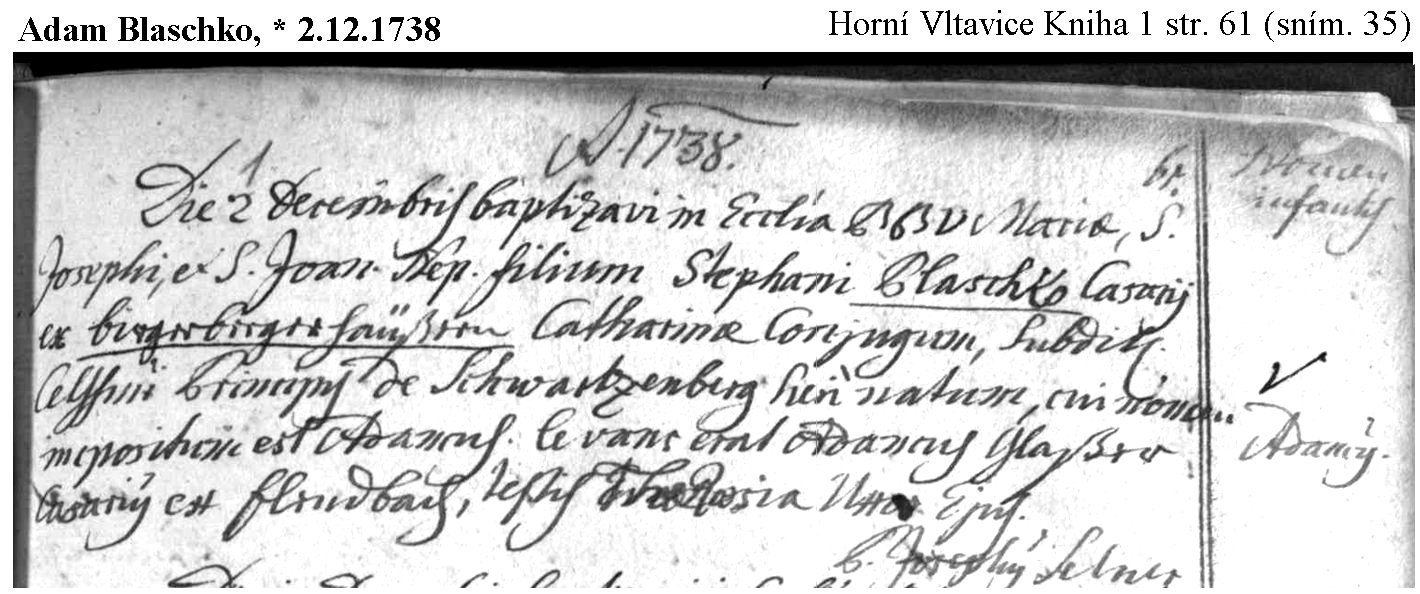 Adam Blaschko, * 2.12.1738
Horní Vltavice Kniha 1 str. 61 (sním. 35)
A. 1738.
Nomen
infantis
Die 2 Decembris baptizavi in Ecclia B V Mariæ, S.
Josephi, et S. Joan. Nep. filium Stephani Blaschko Casarij
ex birgerberger haüßern Catharinæ Conjugum, subdit.
Celssmi Principis de Schwartzenberg heri natum, cui nomen
impositum est Adamus. levans erat Adamus Glaßer
Adamus.
Casarius ex flendbach, testis Theresia Uxor Ejus.
P. Josephus